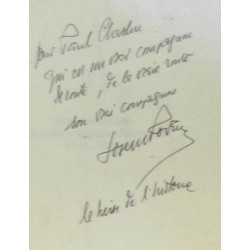 pour Paul Chaslin
qui est un vrai compagnon
de route, de la vraie route
son vrai compagnon
le héros de l'histoire